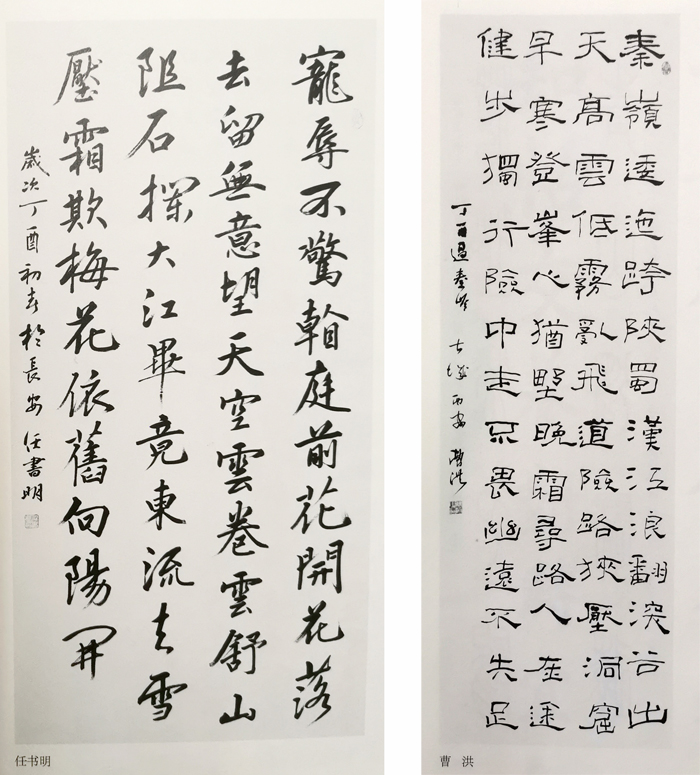 寵辱不驚看庭前花開花落
去留無意望天空雲卷雲舒山
阻石攔大江畢竟東流去雪
壓霜欺梅花依舊向陽開
歲次丁酉初春於長安任書明
任书明
秦嶺逶迤跨陝蜀漢江浪翻滾谷出
天高雲低霧亂飛道險路狹壓洞窟
早寒登峯心猶野晚霜尋路人在途
健步獨行險中走不畏幽遠不失足
丁酉過秦岭 古城西安 曹洪
曹洪